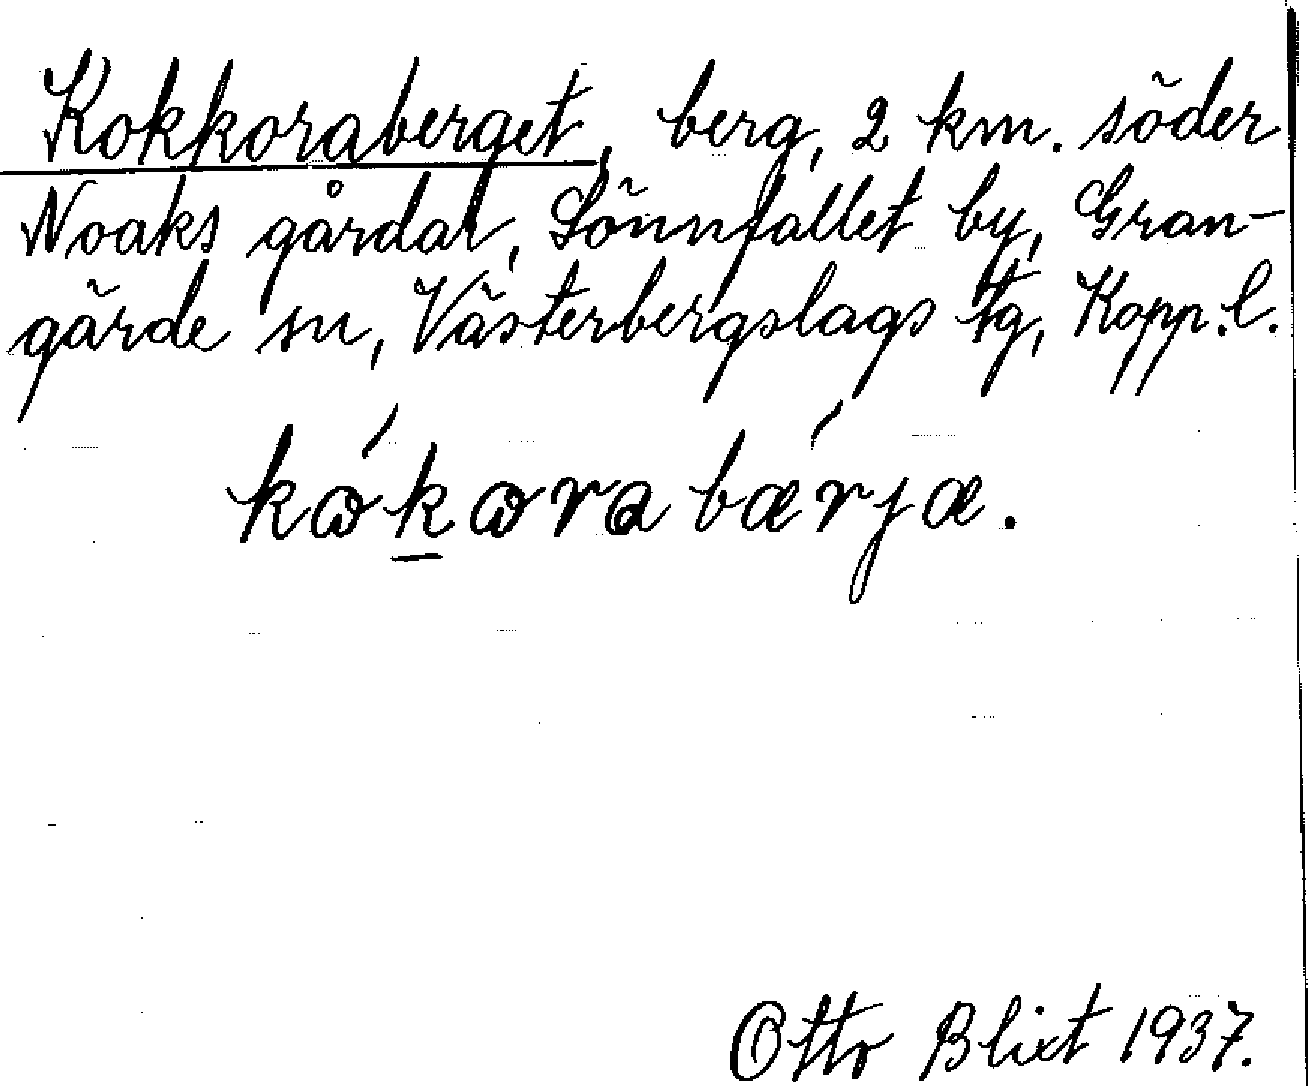 Kokkoraberget, berg, 2 km. söder
Noaks gårdar, Sönnfallet by, Gran-
gärde sn, Västerbergslags tg, Kopp. l.
kωkωra bærjæ.
Otto Blixt 1937.